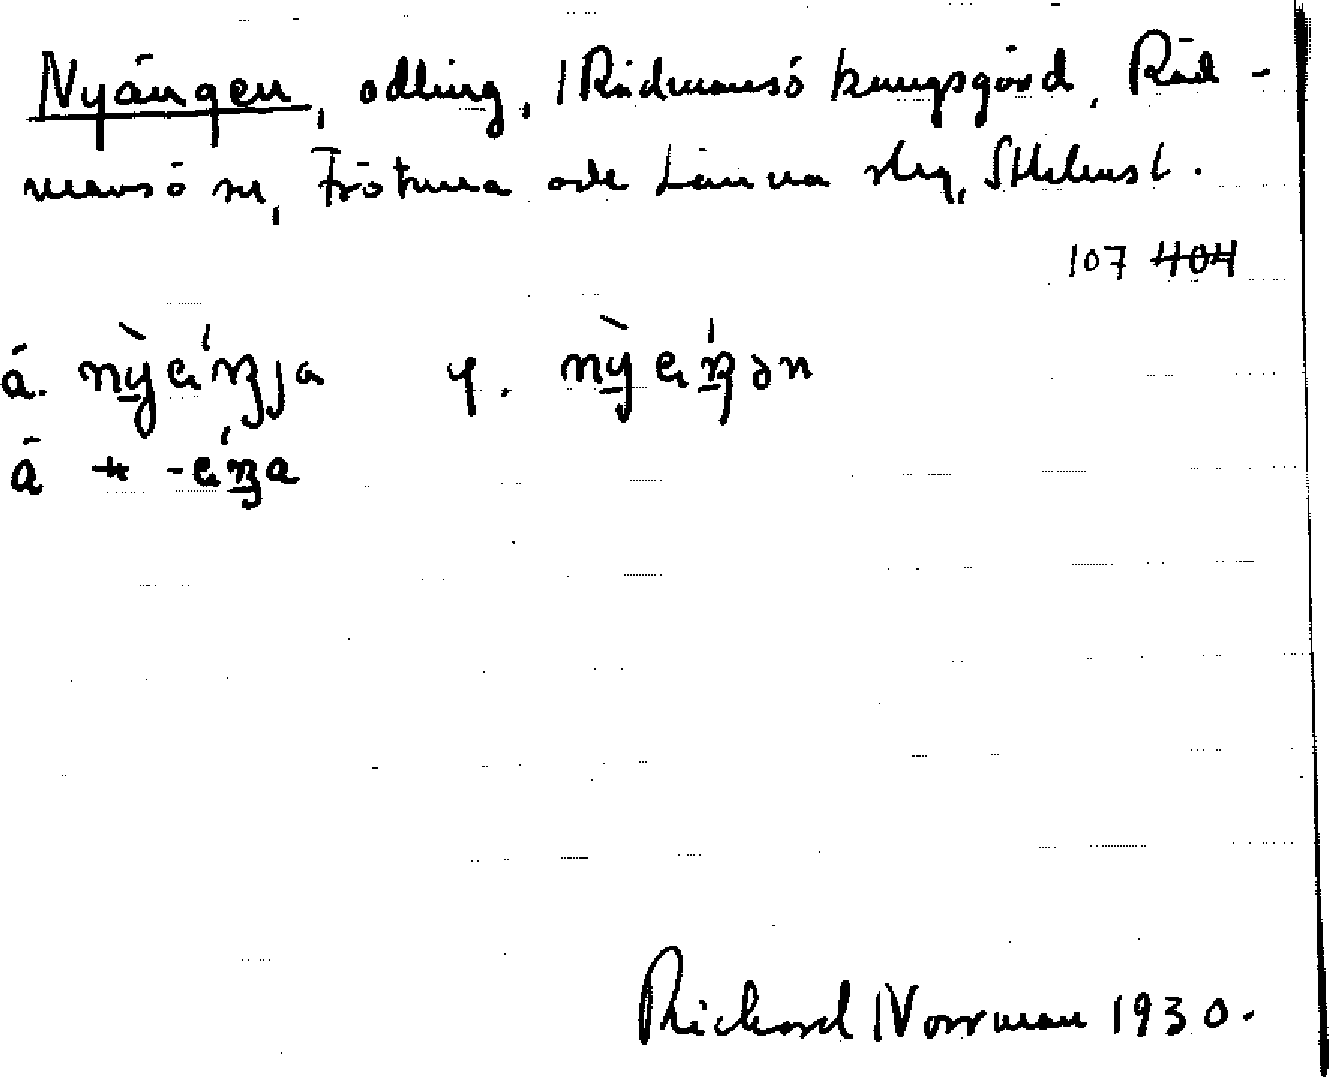 Nyängen, odling, Rådmansö kungsgård, Råd-
mansö sn, Frötuna och Länna slg, Sthlms l.
107 404
ä. nỳäŋja y. nỳäŋən
ä -äŋa
Richard Norrman 1930.